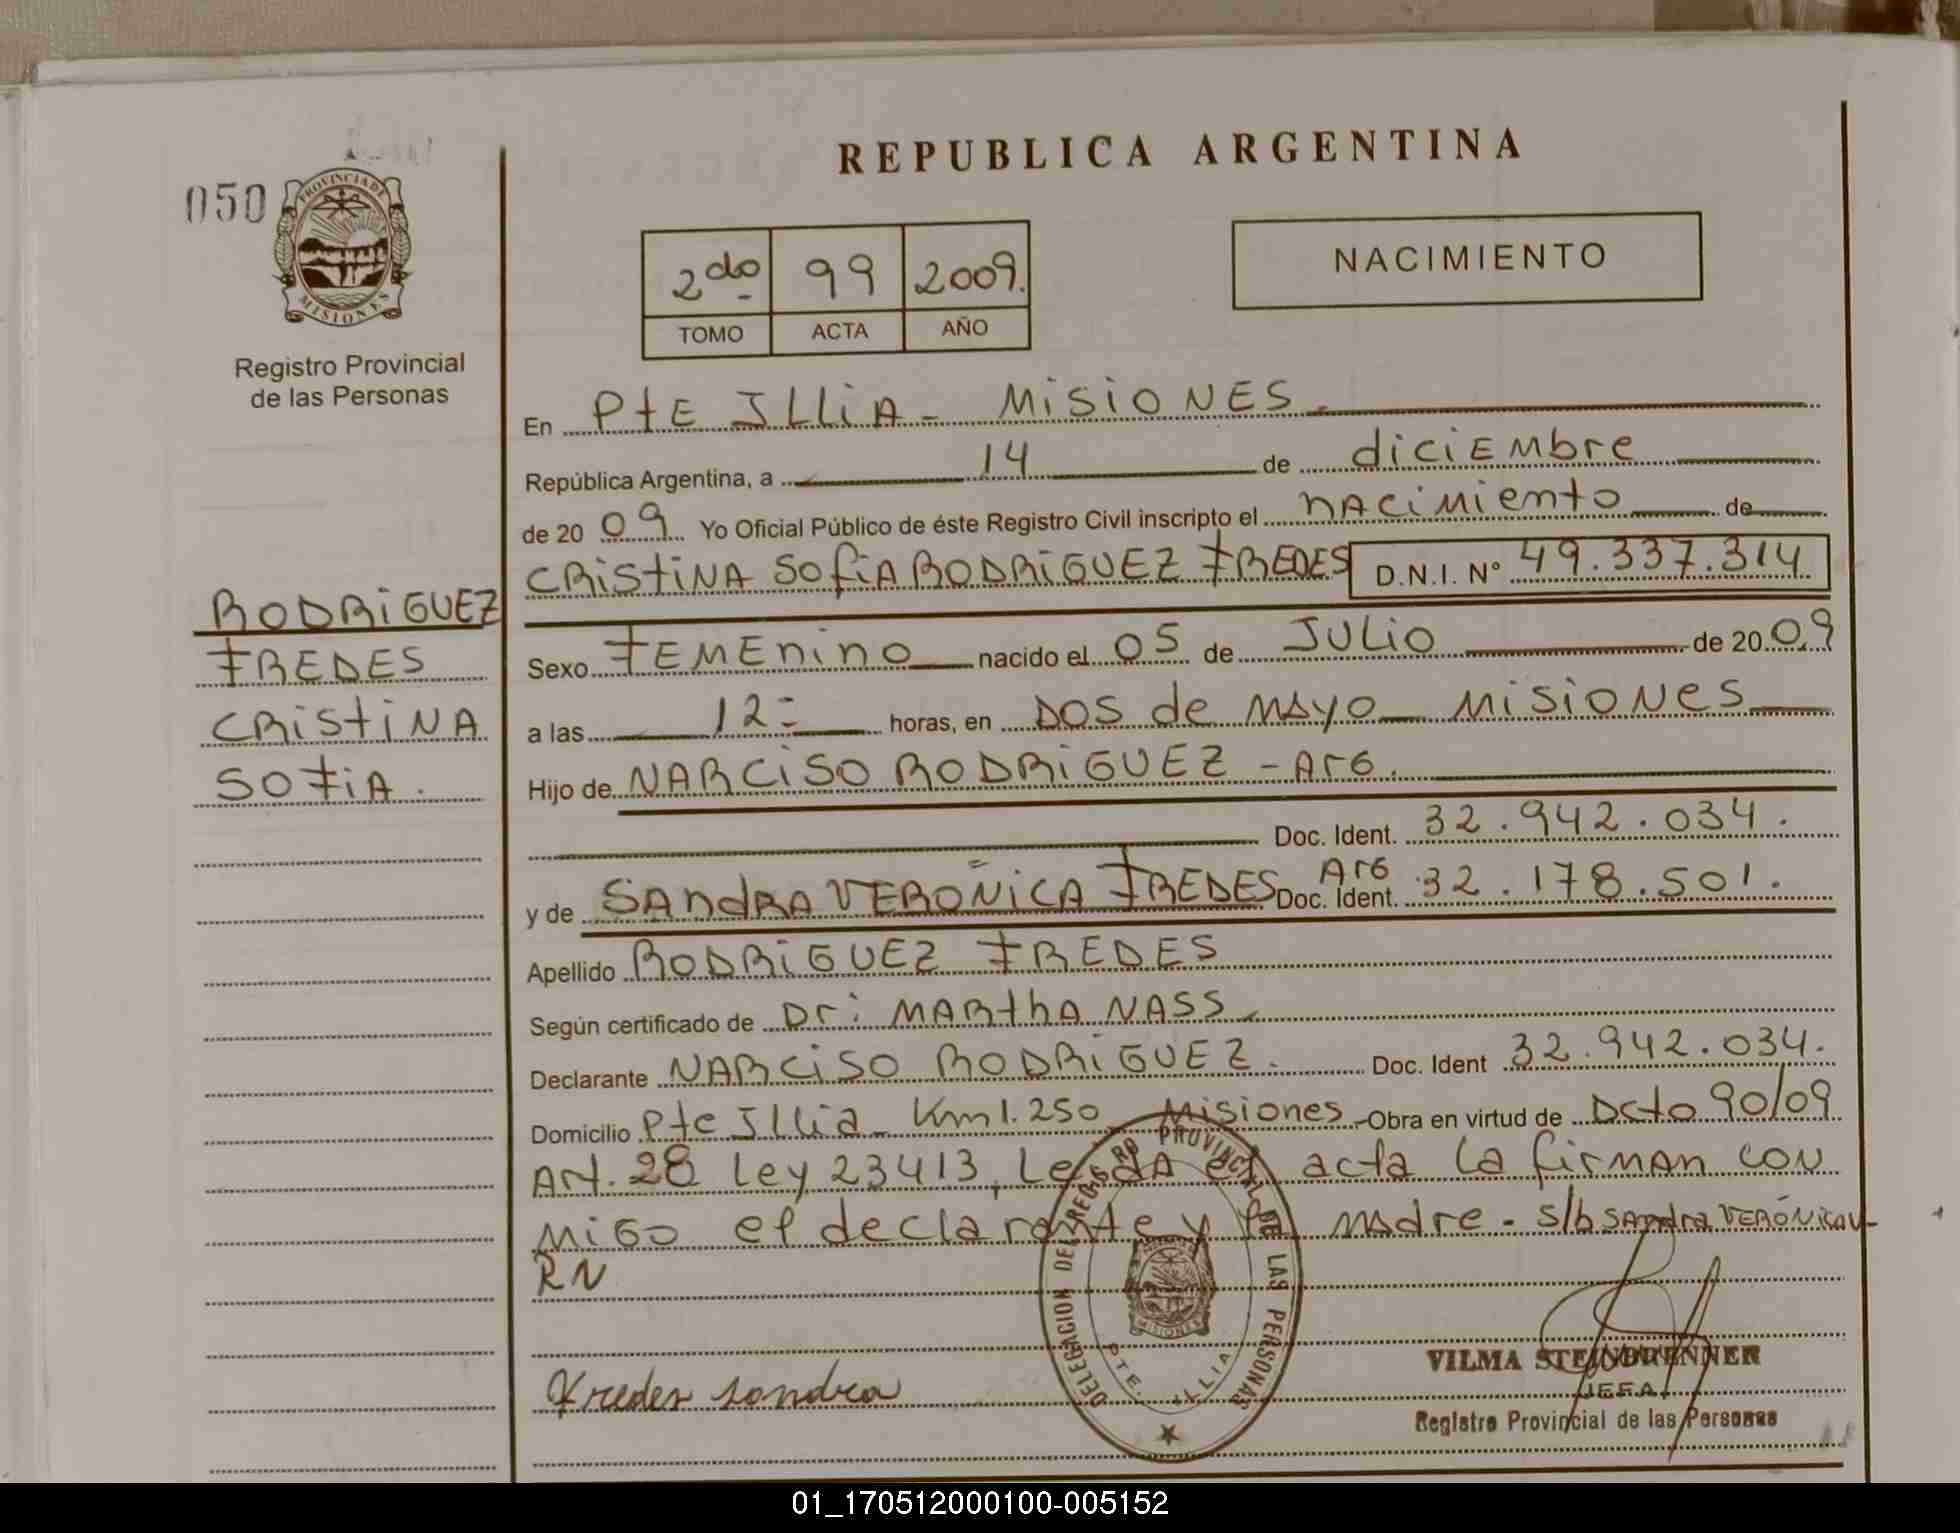 REPUBLICA ARGENTINA
050
PROVINCIA DE
MISIONES
Registro Provincial
de las Personas
2do 99 2009.
TOMO ACTA AÑO
NACIMIENTO
RODRIGUEZ
FREDES
CRISTINA
SOFIA.
En Pte ILLIA - MISIONES.
República Argentina, a 14 de diciembre
de 20 09 Yo Oficial Público de éste Registro Civil inscripto el nacimiento de
CRISTINA SOFIA RODRIGUEZ FREDES D.N.I. N° 49.337.314
Sexo FEMENINO nacido el 05 de JULIO de 20 09
a las 12= horas, en DOS de MAYO MISIONES
Hijo de NARCISO RODRIGUEZ - ARG.
Doc. Ident. 32.942.034.
y de SANDRA VERONICA FREDES ARG Doc. Ident. 32.178.501.
Apellido RODRIGUEZ FREDES
Según certificado de Dr: MARTHA NASS
Declarante NARCISO RODRIGUEZ. Doc. Ident 32.942.034.
Domicilio Pte Illia - Km 1.250 Misiones - Obra en virtud de Dcto 90/09
Art. 28 Ley 23413, Leida el acta la firman con
migo el declarante y la madre - s/b SANDRA VERÓNICA V-
RN
Fredes sandra
DELEGACION DEL REGISTRO PROVINCIAL DE LAS PERSONAS
PTE. ILLIA
MISIONES
VILMA STEINBRENNER
JEFA
Registro Provincial de las Personas
01_170512000100-005152